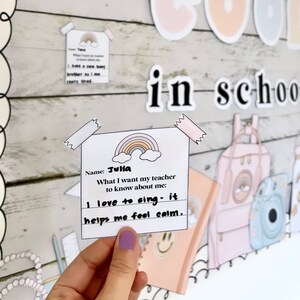 Name: Tara
What I want my teacher
to know about me:
I have a new baby
brother so I am
really tired.
in schoo
Name: Julia
What I want my teacher
to know about me:
I love to sing - it
helps me feel calm.